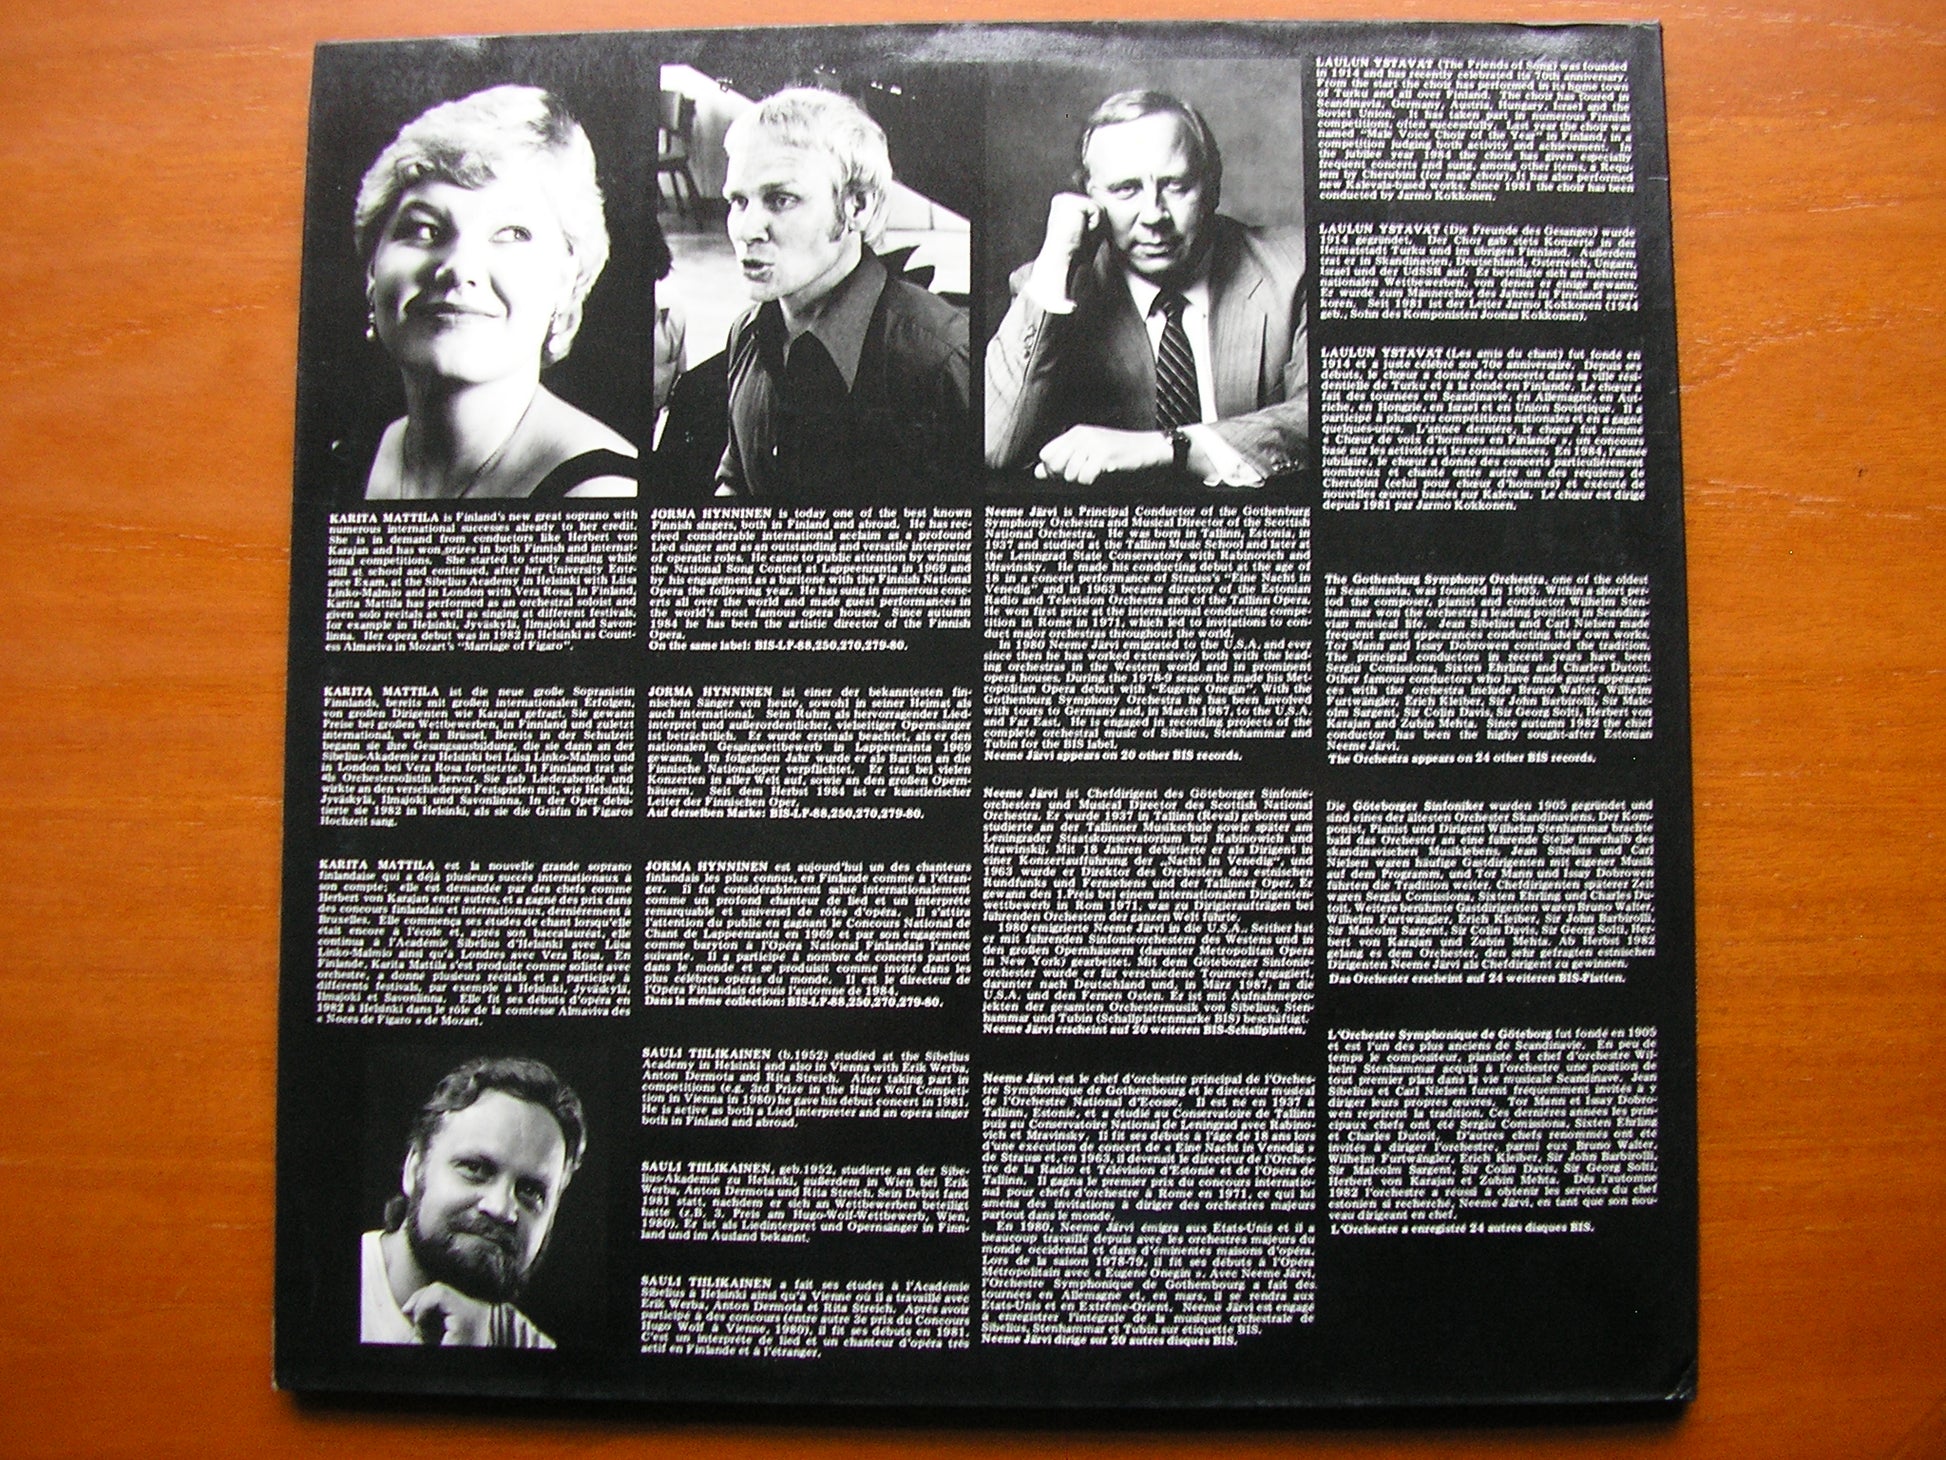 KARITA MATTILA is Finland's new great soprano with
numerous international successes already to her credit.
She is in demand from conductors like Herbert von
Karajan and has won prizes in both Finnish and internat-
ional competitions. She started to study singing while
still at school and continued, after her University Entr-
ance Exam, at the Sibelius Academy in Helsinki with Liisa
Linko-Malmio and in London with Vera Rosa. In Finland,
Karita Mattila has performed as an orchestral soloist and
given solo recitals as well as singing at different festivals,
for example in Helsinki, Jyväskylä, Ilmajoki and Savon-
linna. Her opera debut was in 1982 in Helsinki as Count-
ess Almaviva in Mozart's "Marriage of Figaro".
KARITA MATTILA ist die neue große Sopranistin
Finnlands, bereits mit großen internationalen Erfolgen,
von großen Dirigenten wie Karajan gefragt. Sie gewann
Preise bei großen Wettbewerben, in Finnland und zuletzt
international, wie in Brüssel. Bereits in der Schulzeit
begann sie ihre Gesangsausbildung, die sie dann an der
Sibelius-Akademie zu Helsinki bei Liisa Linko-Malmio und
in London bei Vera Rosa fortsetzte. In Finnland trat sie
als Orchestersolistin hervor. Sie gab Liederabende und
wirkte an den verschiedenen Festspielen mit, wie Helsinki,
Jyväskylä, Ilmajoki und Savonlinna. In der Oper debü-
tierte sie 1982 in Helsinki, als sie die Gräfin in Figaros
Hochzeit sang.
KARITA MATTILA est la nouvelle grande soprano
finlandaise qui a déjà plusieurs succès internationaux à
son compte; elle est demandée par des chefs comme
Herbert von Karajan entre autres, et a gagné des prix dans
des concours finlandais et internationaux, dernièrement à
Bruxelles. Elle commença ses études de chant lorsqu'elle
était encore à l'école et, après son baccalauréat, elle
continua à l'Académie Sibelius d'Helsinki avec Liisa
Linko-Malmio ainsi qu'à Londres avec Vera Rosa. En
Finlande, Karita Mattila s'est produite comme soliste avec
orchestre, a donné plusieurs récitals et a participé à
différents festivals, par exemple à Helsinki, Jyväskylä,
Ilmajoki et Savonlinna. Elle fit ses débuts d'opéra en
1982 à Helsinki dans le rôle de la comtesse Almaviva des
« Noces de Figaro » de Mozart.
JORMA HYNNINEN is today one of the best known
Finnish singers, both in Finland and abroad. He has rec-
eived considerable international acclaim as a profound
Lied singer and as an outstanding and versatile interpreter
of operatic roles. He came to public attention by winning
the National Song Contest at Lappeenranta in 1969 and
by his engagement as a baritone with the Finnish National
Opera the following year. He has sung in numerous conc-
erts all over the world and made guest performances in
the world's most famous opera houses. Since autumn
1984 he has been the artistic director of the Finnish
Opera.
On the same label: BIS-LP-88,250,270,279-80.
JORMA HYNNINEN ist einer der bekanntesten fin-
nischen Sänger von heute, sowohl in seiner Heimat als
auch international. Sein Ruhm als hervorragender Lied-
interpret und außerordentlicher, vielseitiger Opernsänger
ist beträchtlich. Er wurde erstmals beachtet, als er den
nationalen Gesangwettbewerb in Lappeenranta 1969
gewann. Im folgenden Jahr wurde er als Bariton an die
Finnische Nationaloper verpflichtet. Er trat bei vielen
Konzerten in aller Welt auf, sowie an den großen Opern-
häusern. Seit dem Herbst 1984 ist er künstlerischer
Leiter der Finnischen Oper.
Auf derselben Marke: BIS-LP-88,250,270,279-80.
JORMA HYNNINEN est aujourd'hui un des chanteurs
finlandais les plus connus, en Finlande comme à l'étran-
ger. Il fut considérablement salué internationalement
comme un profond chanteur de lied et un interprète
remarquable et universel de rôles d'opéra. Il s'attira
l'attention du public en gagnant le Concours National de
Chant de Lappeenranta en 1969 et par son engagement
comme baryton à l'Opéra National Finlandais l'année
suivante. Il a participé à nombre de concerts partout
dans le monde et se produisit comme invité dans les
plus célèbres opéras du monde. Il est le directeur de
l'Opéra Finlandais depuis l'automne de 1984.
Dans la même collection: BIS-LP-88,250,270,279-80.
SAULI TIILIKAINEN (b.1952) studied at the Sibelius
Academy in Helsinki and also in Vienna with Erik Werba,
Anton Dermota and Rita Streich. After taking part in
competitions (e.g. 3rd Prize in the Hugo Wolf Competi-
tion in Vienna in 1980) he gave his debut concert in 1981.
He is active as both a Lied interpreter and an opera singer
both in Finland and abroad.
SAULI TIILIKAINEN, geb.1952, studierte an der Sibe-
lius-Akademie zu Helsinki, außerdem in Wien bei Erik
Werba, Anton Dermota und Rita Streich. Sein Debut fand
1981 statt, nachdem er sich an Wettbewerben beteiligt
hatte (z.B. 3. Preis am Hugo-Wolf-Wettbewerb, Wien,
1980). Er ist als Liedinterpret und Opernsänger in Finn-
land und im Ausland bekannt.
SAULI TIILIKAINEN a fait ses études à l'Académie
Sibelius à Helsinki ainsi qu'à Vienne où il a travaillé avec
Erik Werba, Anton Dermota et Rita Streich. Après avoir
participé à des concours (entre autre 3e prix du Concours
Hugo Wolf à Vienne, 1980), il fit ses débuts en 1981.
C'est un interprète de lied et un chanteur d'opéra très
actif en Finlande et à l'étranger.
Neeme Järvi is Principal Conductor of the Gothenburg
Symphony Orchestra and Musical Director of the Scottish
National Orchestra. He was born in Tallinn, Estonia, in
1937 and studied at the Tallinn Music School and later at
the Leningrad State Conservatory with Rabinovich and
Mravinsky. He made his conducting debut at the age of
18 in a concert performance of Strauss's "Eine Nacht in
Venedig" and in 1963 became director of the Estonian
Radio and Television Orchestra and of the Tallinn Opera.
He won first prize at the international conducting compe-
tition in Rome in 1971, which led to invitations to con-
duct major orchestras throughout the world.
In 1980 Neeme Järvi emigrated to the U.S.A. and ever
since then he has worked extensively both with the lead-
ing orchestras in the Western world and in prominent
opera houses. During the 1978-9 season he made his Met-
ropolitan Opera debut with "Eugene Onegin". With the
Gothenburg Symphony Orchestra he has been involved
with tours to Germany and, in March 1987, to the U.S.A.
and Far East. He is engaged in recording projects of the
complete orchestral music of Sibelius, Stenhammar and
Tubin for the BIS label.
Neeme Järvi appears on 20 other BIS records.
Neeme Järvi ist Chefdirigent des Göteborger Sinfonie-
orchesters und Musical Director des Scottish National
Orchestra. Er wurde 1937 in Tallinn (Reval) geboren und
studierte an der Tallinner Musikschule sowie später am
Leningrader Staatskonservatorium bei Rabinowich und
Mrawinskij. Mit 18 Jahren debütierte er als Dirigent in
einer Konzertaufführung der „Nacht in Venedig", und
1963 wurde er Direktor des Orchesters des estnischen
Rundfunks und Fernsehens und der Tallinner Oper. Er
gewann den 1.Preis bei einem internationalen Dirigenten-
wettbewerb in Rom 1971, was zu Dirigieraufträgen bei
führenden Orchestern der ganzen Welt führte.
1980 emigrierte Neeme Järvi in die U.S.A.. Seither hat
er mit führenden Sinfonieorchestern des Westens und in
den großen Opernhäusern (darunter Metropolitan Opera
in New York) gearbeitet. Mit dem Göteborger Sinfonie-
orchester wurde er für verschiedene Tournees engagiert,
darunter nach Deutschland und, in März 1987, in die
U.S.A. und den Fernen Osten. Er ist mit Aufnahmepro-
jekten der gesamten Orchestermusik von Sibelius, Sten-
hammar und Tubin (Schallplattenmarke BIS) beschäftigt.
Neeme Järvi erscheint auf 20 weiteren BIS-Schallplatten.
Neeme Järvi est le chef d'orchestre principal de l'Orches-
tre Symphonique de Gothembourg et le directeur musical
de l'Orchestre National d'Ecosse. Il est né en 1937 à
Tallinn, Estonie, et a étudié au Conservatoire de Tallinn
puis au Conservatoire National de Leningrad avec Rabino-
vich et Mravinsky. Il fit ses débuts à l'âge de 18 ans lors
d'une exécution de concert de « Eine Nacht in Venedig »
de Strauss et, en 1963, il devenait le directeur de l'Orches-
tre de la Radio et Télévision d'Estonie et de l'Opéra de
Tallinn. Il gagna le premier prix du concours internatio-
nal pour chefs d'orchestre à Rome en 1971, ce qui lui
amena des invitations à diriger des orchestres majeurs
partout dans le monde.
En 1980, Neeme Järvi émigra aux Etats-Unis et il a
beaucoup travaillé depuis avec les orchestres majeurs du
monde occidental et dans d'éminentes maisons d'opéra.
Lors de la saison 1978-79, il fit ses débuts à l'Opéra
Métropolitain avec « Eugene Onegin ». Avec Neeme Järvi,
l'Orchestre Symphonique de Gothembourg a fait des
tournées en Allemagne et, en mars, il se rendra aux
Etats-Unis et en Extrême-Orient. Neeme Järvi est engagé
à enregistrer l'intégrale de la musique orchestrale de
Sibelius, Stenhammar et Tubin sur étiquette BIS.
Neeme Järvi dirige sur 20 autres disques BIS.
LAULUN YSTÄVÄT (The Friends of Song) was founded
in 1914 and has recently celebrated its 70th anniversary.
From the start the choir has performed in its home town
of Turku and all over Finland. The choir has toured in
Scandinavia, Germany, Austria, Hungary, Israel and the
Soviet Union. It has taken part in numerous Finnish
competitions, often successfully. Last year the choir was
named "Male Voice Choir of the Year" in Finland, in a
competition judging both activity and achievement. In
the jubilee year 1984 the choir has given especially
frequent concerts and sung, among other items, a Requ-
iem by Cherubini (for male choir). It has also performed
new Kalevala-based works. Since 1981 the choir has been
conducted by Jarmo Kokkonen.
LAULUN YSTÄVÄT (Die Freunde des Gesanges) wurde
1914 gegründet. Der Chor gab stets Konzerte in der
Heimatstadt Turku und im übrigen Finnland. Außerdem
trat er in Skandinavien, Deutschland, Österreich, Ungarn,
Israel und der UdSSR auf. Er beteiligte sich an mehreren
nationalen Wettbewerben, von denen er einige gewann.
Er wurde zum Männerchor des Jahres in Finnland auser-
koren. Seit 1981 ist der Leiter Jarmo Kokkonen (1944
geb., Sohn des Komponisten Joonas Kokkonen).
LAULUN YSTÄVÄT (Les amis du chant) fut fondé en
1914 et a juste célébré son 70e anniversaire. Depuis ses
débuts, le chœur a donné des concerts dans sa ville rési-
dentielle de Turku et à la ronde en Finlande. Le chœur a
fait des tournées en Scandinavie, en Allemagne, en Aut-
riche, en Hongrie, en Israel et en Union Soviétique. Il a
participé à plusieurs compétitions nationales et en a gagné
quelques-unes. L'année dernière, le chœur fut nommé
« Chœur de voix d'hommes en Finlande », un concours
basé sur les activités et les connaissances. En 1984, l'année
jubilaire, le chœur a donné des concerts particulièrement
nombreux et chanté entre autre un des requiems de
Cherubini (celui pour chœur d'hommes) et exécuté de
nouvelles œuvres basées sur Kalevala. Le chœur est dirigé
depuis 1981 par Jarmo Kokkonen.
The Gothenburg Symphony Orchestra, one of the oldest
in Scandinavia, was founded in 1905. Within a short per-
iod the composer, pianist and conductor Wilhelm Sten-
hammar won the orchestra a leading position in Scandina-
vian musical life. Jean Sibelius and Carl Nielsen made
frequent guest appearances conducting their own works.
Tor Mann and Issay Dobrowen continued the tradition.
The principal conductors in recent years have been
Sergiu Comissiona, Sixten Ehrling and Charles Dutoit.
Other famous conductors who have made guest appearan-
ces with the orchestra include Bruno Walter, Wilhelm
Furtwängler, Erich Kleiber, Sir John Barbirolli, Sir Malc-
olm Sargent, Sir Colin Davis, Sir Georg Solti, Herbert von
Karajan and Zubin Mehta. Since autumn 1982 the chief
conductor has been the highy sought-after Estonian
Neeme Järvi.
The Orchestra appears on 24 other BIS records.
Die Göteborger Sinfoniker wurden 1905 gegründet und
sind eines der ältesten Orchester Skandinaviens. Der Kom-
ponist, Pianist und Dirigent Wilhelm Stenhammar brachte
bald das Orchester an eine führende Stelle innerhalb des
skandinavischen Musiklebens. Jean Sibelius und Carl
Nielsen waren häufige Gastdirigenten mit eigener Musik
auf dem Programm, und Tor Mann und Issay Dobrowen
führten die Tradition weiter. Chefdirigenten späterer Zeit
waren Sergiu Comissiona, Sixten Ehrling und Charles Du-
toit. Weitere berühmte Gastdirigenten waren Bruno Walter,
Wilhelm Furtwängler, Erich Kleiber, Sir John Barbirolli,
Sir Malcolm Sargent, Sir Colin Davis, Sir Georg Solti, Her-
bert von Karajan und Zubin Mehta. Ab Herbst 1982
gelang es dem Orchester, den sehr gefragten estnischen
Dirigenten Neeme Järvi als Chefdirigent zu gewinnen.
Das Orchester erscheint auf 24 weiteren BIS-Platten.
L'Orchestre Symphonique de Göteborg fut fondé en 1905
et est l'un des plus anciens de Scandinavie. En peu de
temps le compositeur, pianiste et chef d'orchestre Wil-
helm Stenhammar acquit à l'orchestre une position de
tout premier plan dans la vie musicale Scandinave. Jean
Sibelius et Carl Nielsen furent fréquemment invités à y
diriger leurs propres œuvres. Tor Mann et Issay Dobro-
wen reprirent la tradition. Ces dernières années les prin-
cipaux chefs ont été Sergiu Comissiona, Sixten Ehrling
et Charles Dutoit. D'autres chefs renommés ont été
invités à diriger l'orchestre, parmi eux Bruno Walter,
Wilhelm Furtwängler, Erich Kleiber, Sir John Barbirolli,
Sir Malcolm Sargent, Sir Colin Davis, Sir Georg Solti,
Herbert von Karajan et Zubin Mehta. Dès l'automne
1982 l'orchestre a réussi à obtenir les services du chef
estonien si recherché, Neeme Järvi, en tant que son nou-
veau dirigeant en chef.
L'Orchestre a enregistré 24 autres disques BIS.